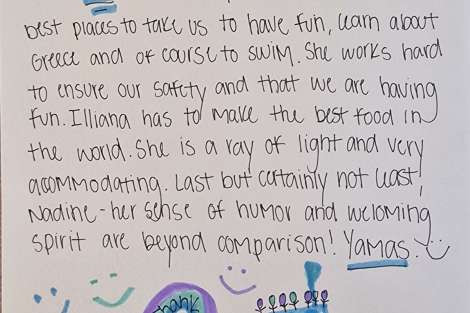 best places to take us to have fun, learn about
Greece and of course to swim. She works hard
to ensure our safety and that we are having
fun. Illiana has to make the best food in
the world. She is a ray of light and very
accommodating. Last but certainly not least,
Nadine - her sense of humor and welcoming
spirit are beyond comparison! Yamas!